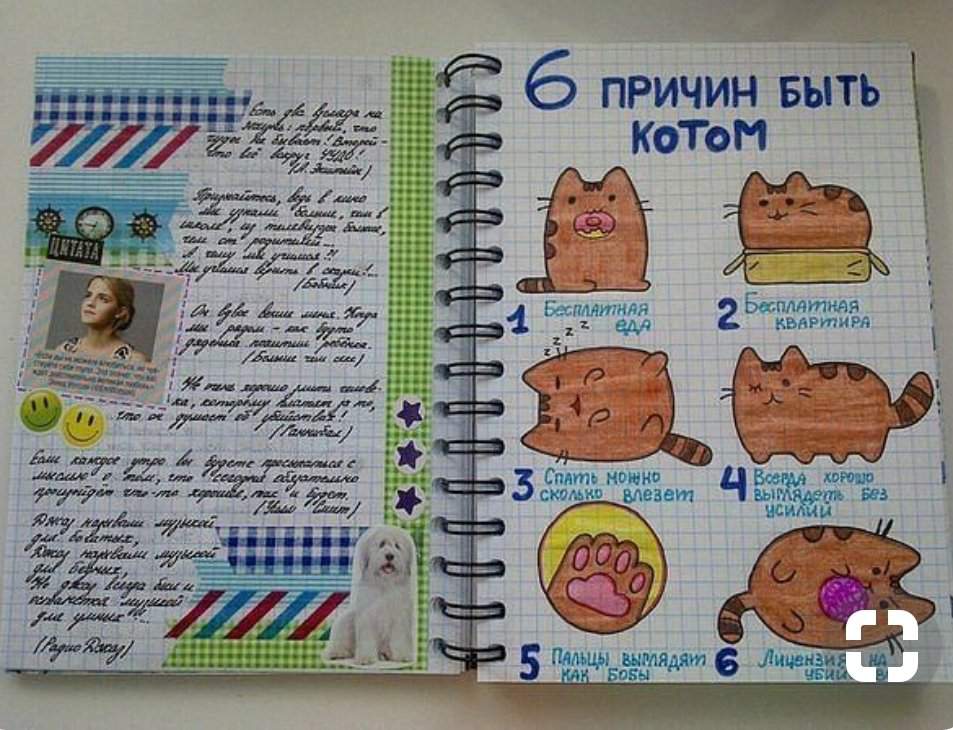 Есть два взгляда на
жизнь: первый, что
чудес не бывает! Второй -
что всё вокруг ЧУДО!
(А. Энштейн)
Признайтесь, ведь в кино
мы узнали больше, чем в
школе, из телевизора больше,
чем от родителей...
А чему мы учимся?!
Мы учимся верить в сказки!...
(Бобёнок)
ЦИТАТА
Он вдвое выше меня. Когда
мы рядом - как будто
дяденька похитил ребёнка.
(Больше чем секс)
Не очень хорошо злить челове-
ка, которому платят за то,
что он думает об убийствах!
(Ганнибал)
Если каждое утро вы будете просыпаться с
мыслью о том, что сегодня обязательно
произойдёт что-то хорошее, так и будет.
(Уилл Смит)
Джаз называли музыкой
для богатых,
Джаз называли музыкой
для бедных,
Но джаз всегда был и
останется музыкой
для умных!...
(Радио Джаз)
6 ПРИЧИН БЫТЬ
КОТОМ
1 Бесплатная
еда
2 Бесплатная
квартира
z z z z
3 Спать можно
сколько влезет
4 Всегда хорошо
выглядеть без
усилий
5 Пальцы выглядят
как бобы
6 Лицензия на